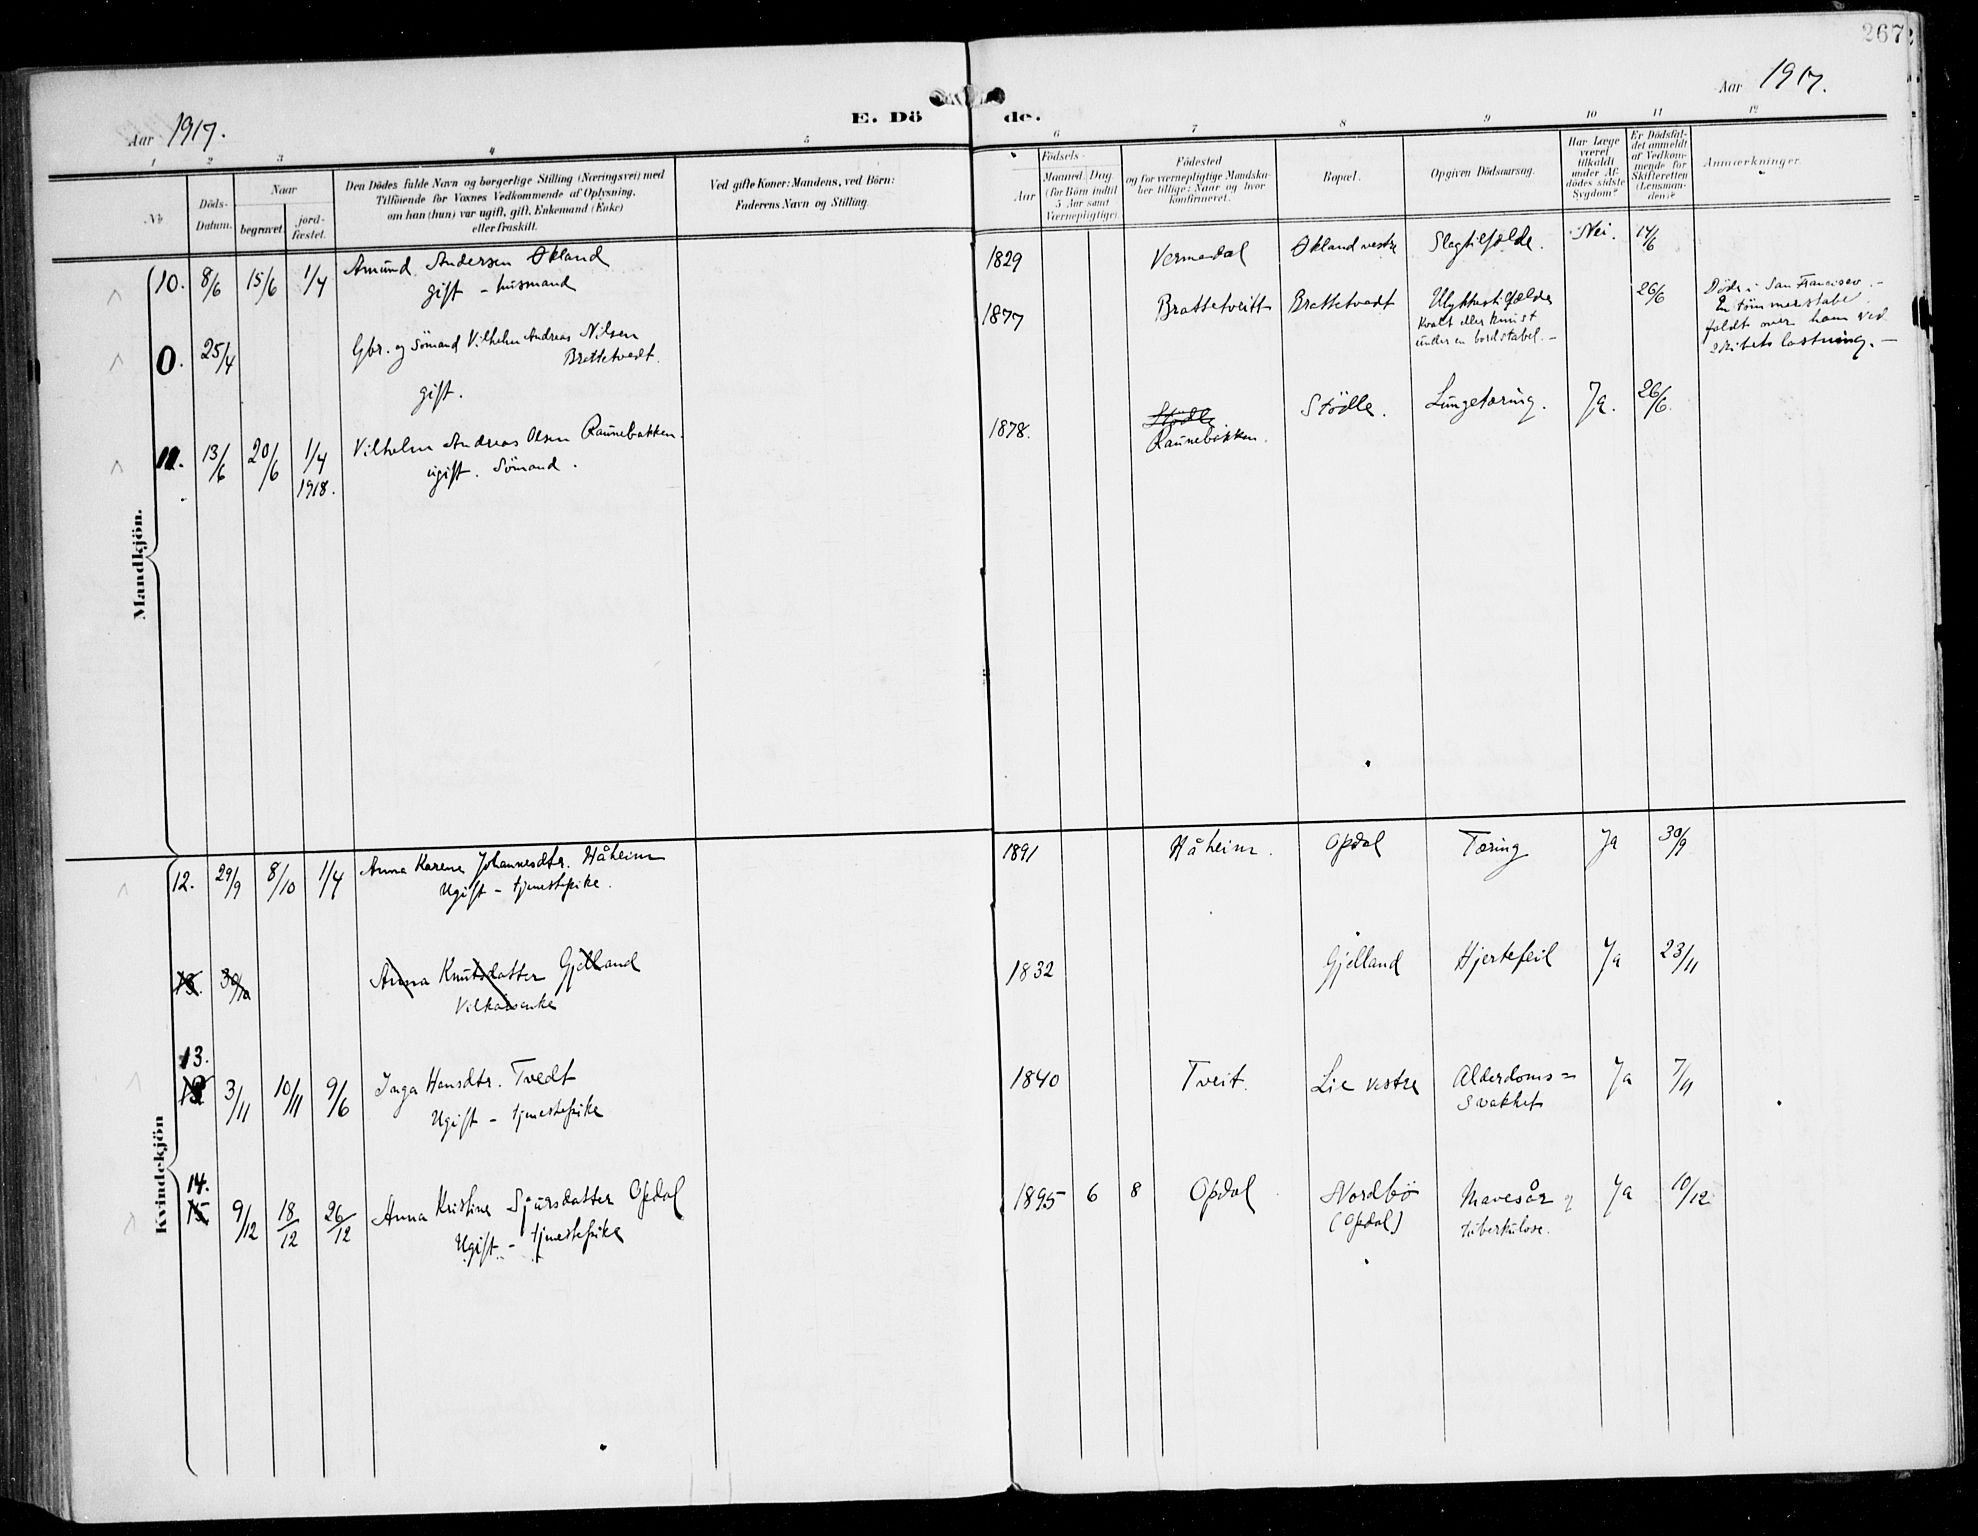 267
Aar 1917.
E. Döde.
Aar 1917.
1 2 3 4 5 6 7 8 9 10 11 12
No
Döds-
Datum.
Naar
begravet.
jord-
fæstet.
Den Dödes fulde Navn og borgerlige Stilling (Næringsvei) med
Tilföiende for Voxnes Vedkommende af Oplysning,
om han (hun) var ugift, gift, Enkemand (Enke)
eller fraskilt.
Ved gifte Koner: Mandens, ved Börn:
Faderens Navn og Stilling.
Födsels-
Aar
Maaned. Dag.
(for Börn indtil
5 Aar samt
Værnepligtige).
Födested
og for værnepligtige Mandska-
ber tillige: Naar og hvor
konfirmeret.
Bopæl.
Opgiven Dödsaarsag.
Har Læge
været
tilkaldt
under Af-
dödes sidste
Sygdom?
Er Dödsfal-
det anmeldt
af Vedkom-
mende for
Skifteretten
(Lensman-
den)?
Anmærkninger.
Mandkjön.
10. 8/6 15/6 1/4 Amund Andersen Økland 1829 Vermedal Økland vestre Slagtilfælde. Nei. 14/6
gift - husmand
0. 25/4 Gbr. og Sömand Vilhelm Andreas Nilsen 1877 Brattetveitt Brattetvedt Ulykkestilfælde 26/6 Döde i San Francisco. -
Brattetvedt. Kvalt eller knust En tömmerstabel
under en bordstabel. - faldt over ham ved
skibets lastning. -
gift.
11. 13/6 20/6 1/4 Vilhelm Andreas Olsen Raunebakken. 1878. Stödle Stödle. Lungetæring. Ja. 26/6
1918. ugift. Sömand. Raunebakken.
Kvindekjön
12. 29/9 8/10 1/4 Anna Karena Johannesdtr. Håheim 1891 Håheim. Opdal Tæring Ja 30/9
Ugift - tjenestepike.
13. 30/10 Anna Knutsdatter Gjelland 1832 Gjelland Hjertefeil Ja 23/11
Vilkårsenke
13.
3/11 10/11 9/6 Inga Hansdtr. Tvedt 1840 Tveit. Lie vestre Alderdoms= Ja 7/11
Ugift - tjenestepike svakhet
14.
15 9/12 18/12 26/12 Anna Kristine Sjursdatter Opdal 1895 6 8 Opdal Nordbö Mavesår og Ja 10/12
Ugift - tjenestepike (Opdal) tuberkulose.